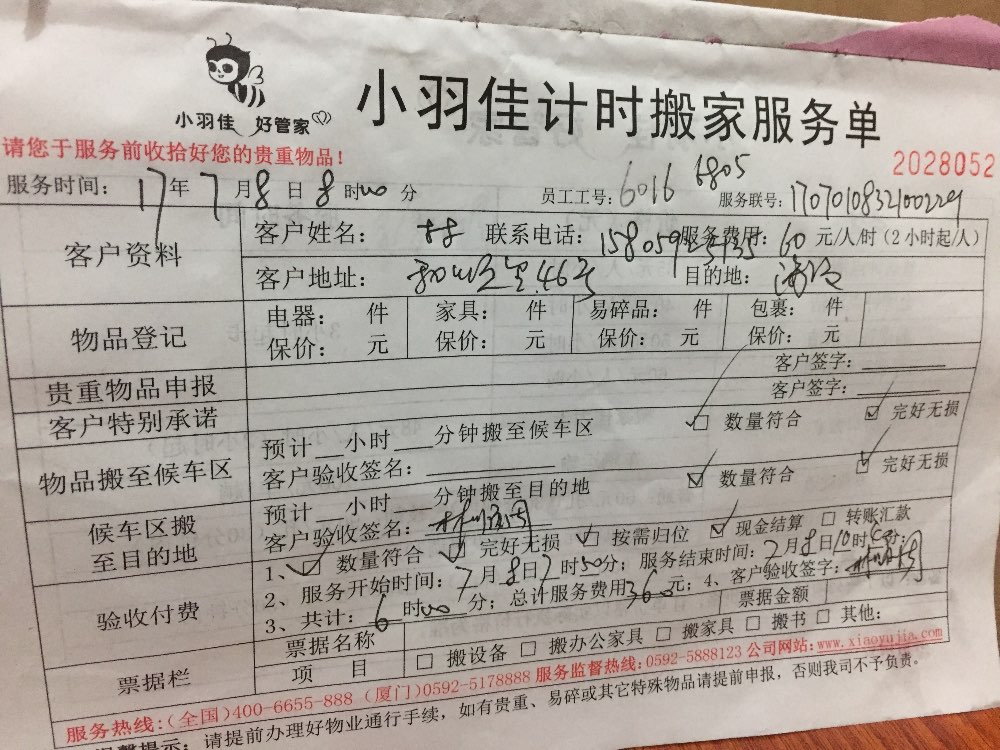 小羽佳 好管家
小羽佳计时搬家服务单
请您于服务前收拾好您的贵重物品！
2028052
服务时间：17年7月8日8时00分 员工工号：6016 6805 服务联号：
客户资料
客户姓名： 联系电话： 服务费用：60元/人/时（2小时起/人）
客户地址： 目的地：
物品登记
电器： 件 家具： 件 易碎品： 件 包裹： 件
保价： 元 保价： 元 保价： 元 保价： 元
贵重物品申报 客户签字：
客户特别承诺 客户签字：
物品搬至候车区
预计 小时 分钟搬至候车区 数量符合 完好无损
客户验收签名：
候车区搬至目的地
预计 小时 分钟搬至目的地 数量符合 完好无损
客户验收签名：
验收付费
1、 数量符合 完好无损 按需归位 现金结算 转账汇款
2、服务开始时间：7月8日7时50分；服务结束时间：7月8日10时 分；
3、共计：6时00分；总计服务费用360元；4、客户验收签字：
票据栏
票据名称 票据金额
项 目 搬设备 搬办公家具 搬家具 搬书 其他：
服务热线：（全国）400-6655-888（厦门）0592-5178888 服务监督热线：0592-5888123 公司网站：www.xiaoyujia.com
温馨提示：请提前办理好物业通行手续，如有贵重、易碎或其它特殊物品请提前申报，否则我司不予负责。